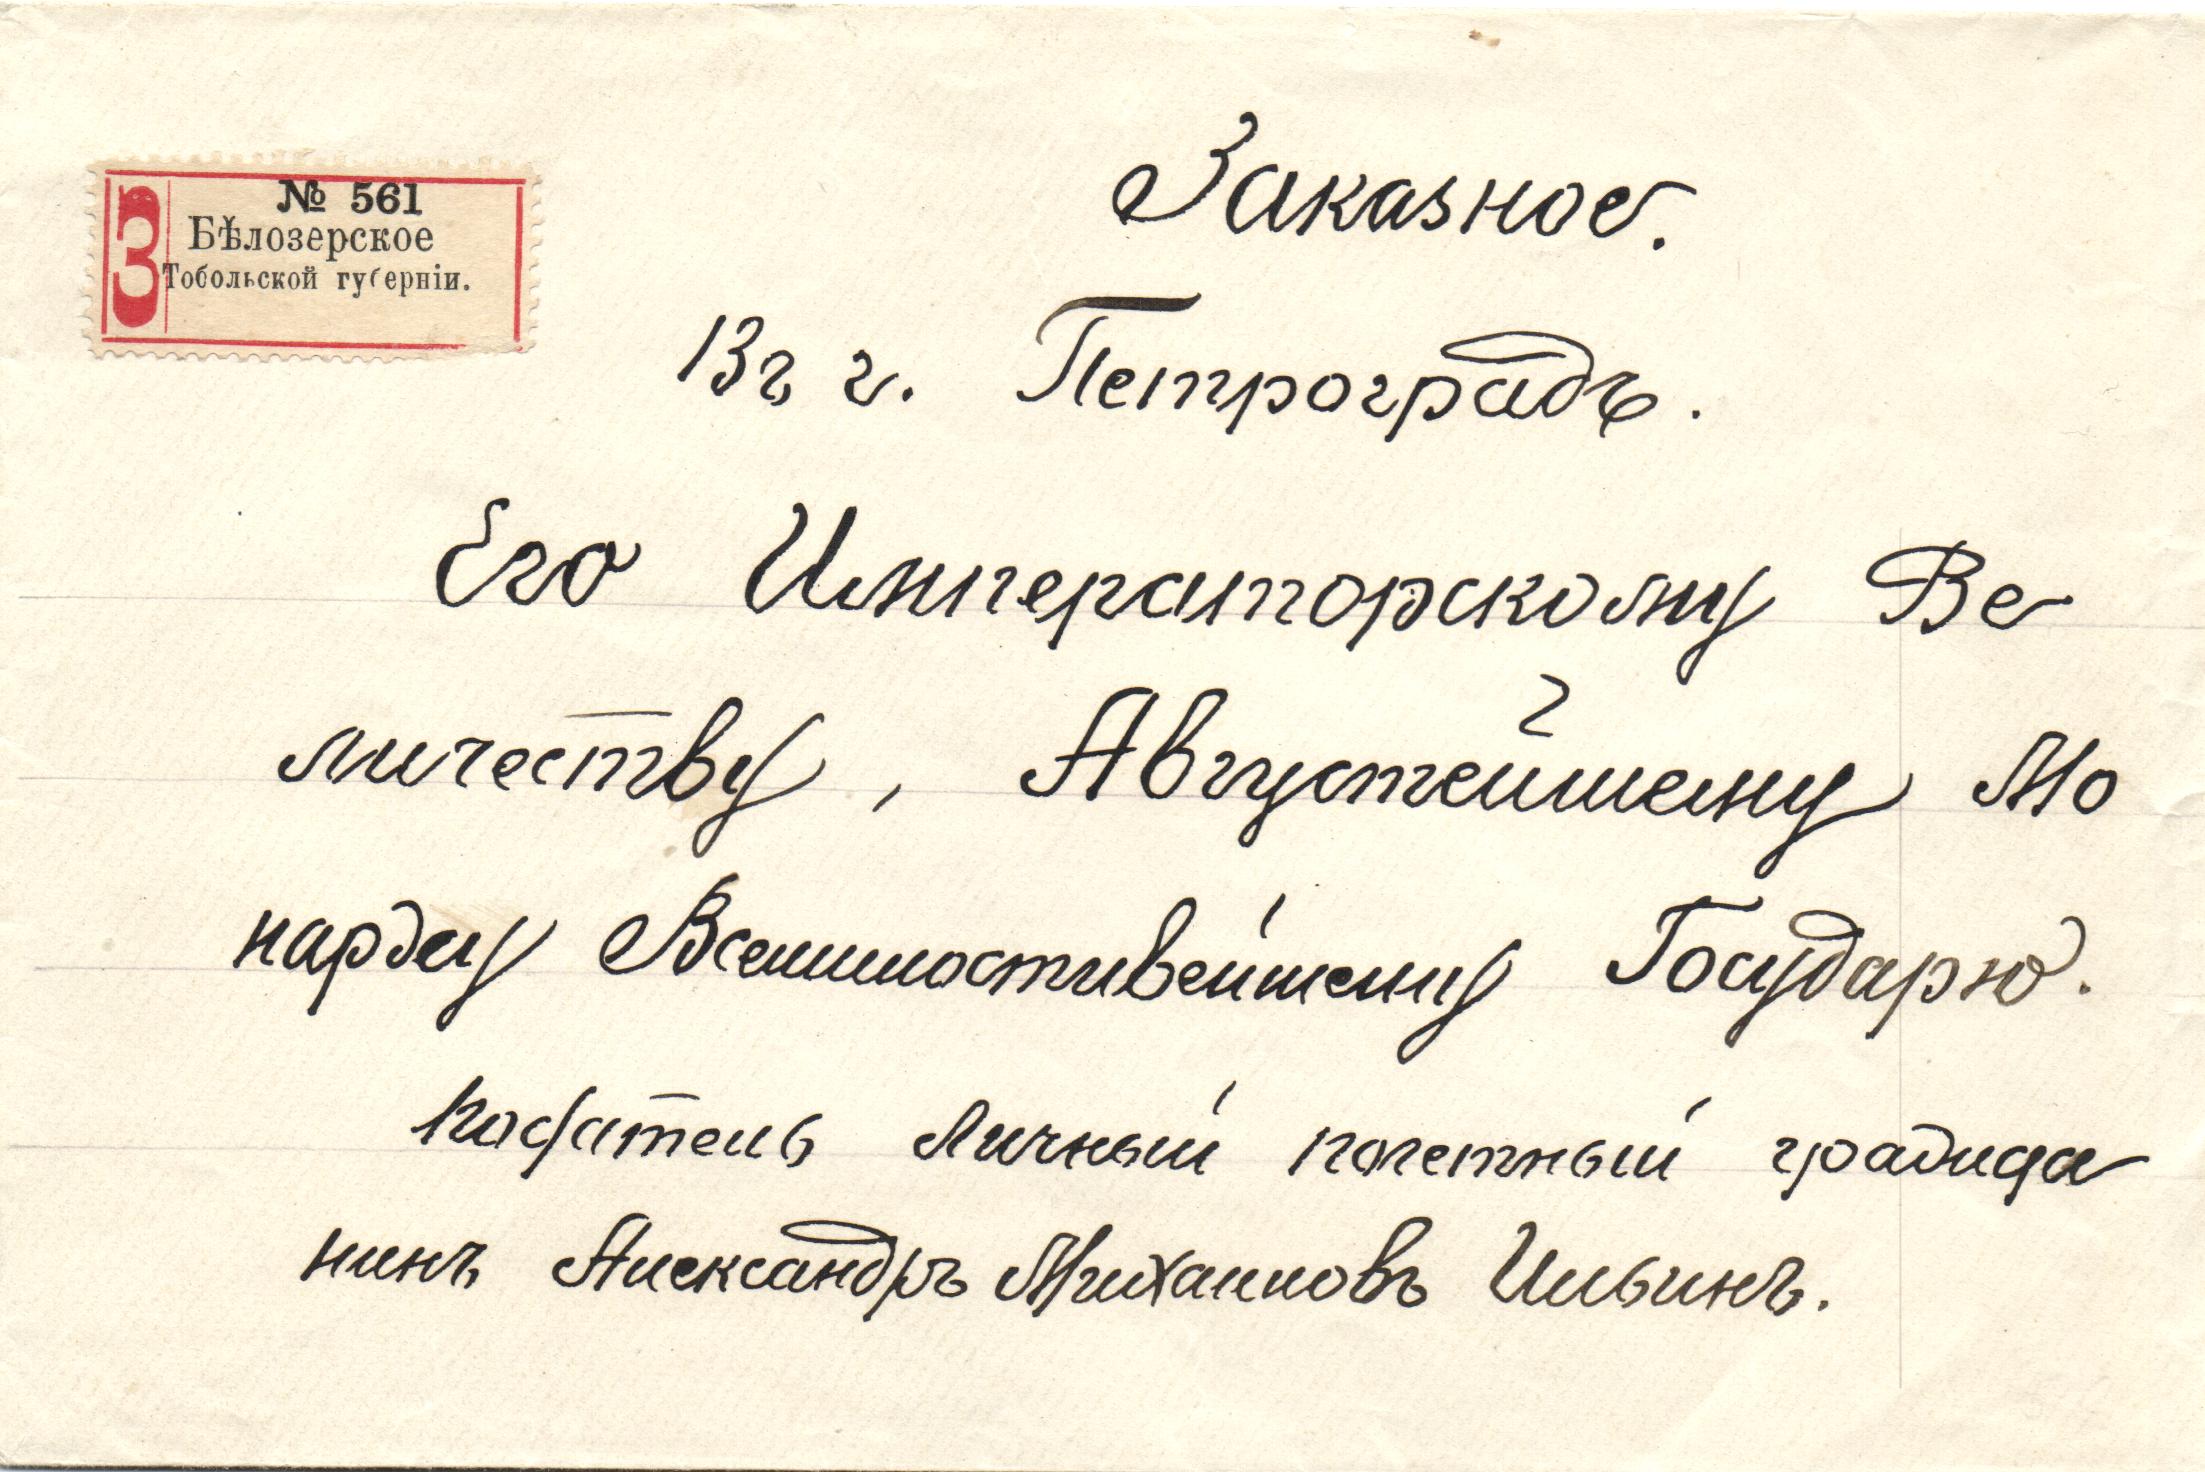 № 561
Бѣлозерское
Тобольской губерніи.
З
Заказное.
Въ г. Петроградъ.
Его Императорскому Ве
личеству, Августейшему Мо
нарху Всемилостивейшему Государю.
Податель личный почетный гражда
нинъ Александръ Михаиловъ Ильинъ.